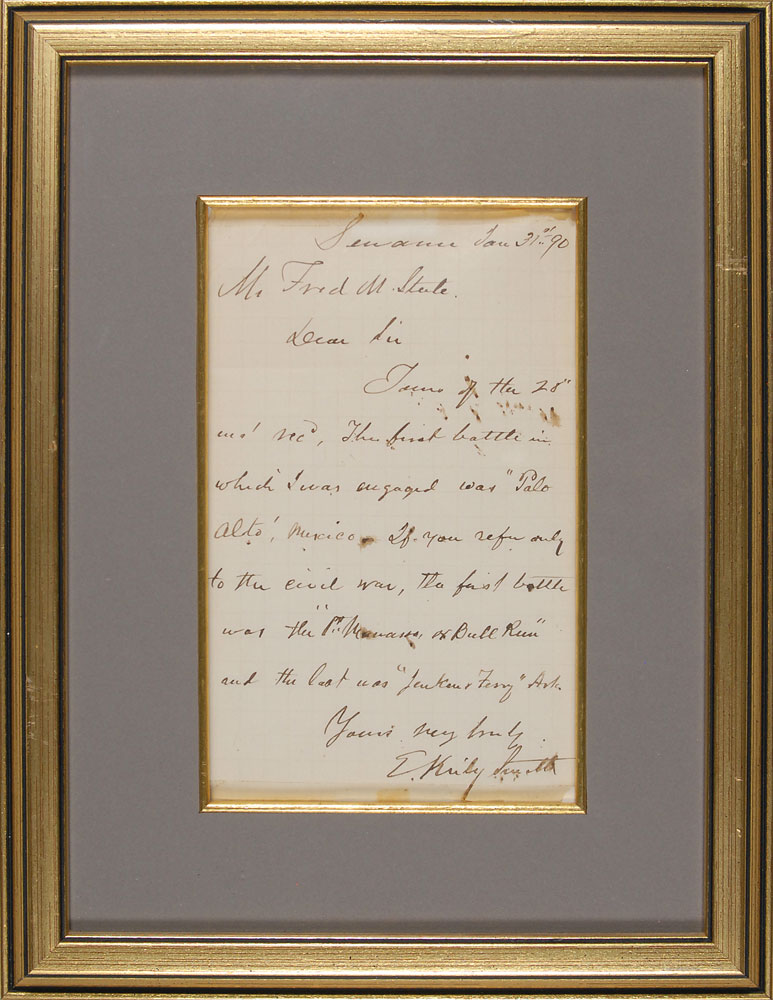 Sewanee Jan 31st 90
Mr Fred M. Steele.
Dear Sir
Yours of the 28"
inst recd, The first battle in
which I was engaged was "Palo
Alto", Mexico. If you refer only
to the civil war, the first battle
was the "1st Manassas or Bull Run"
and the last was "Jenkens Ferry" Ark.
Yours very truly
E. Kirby Smith